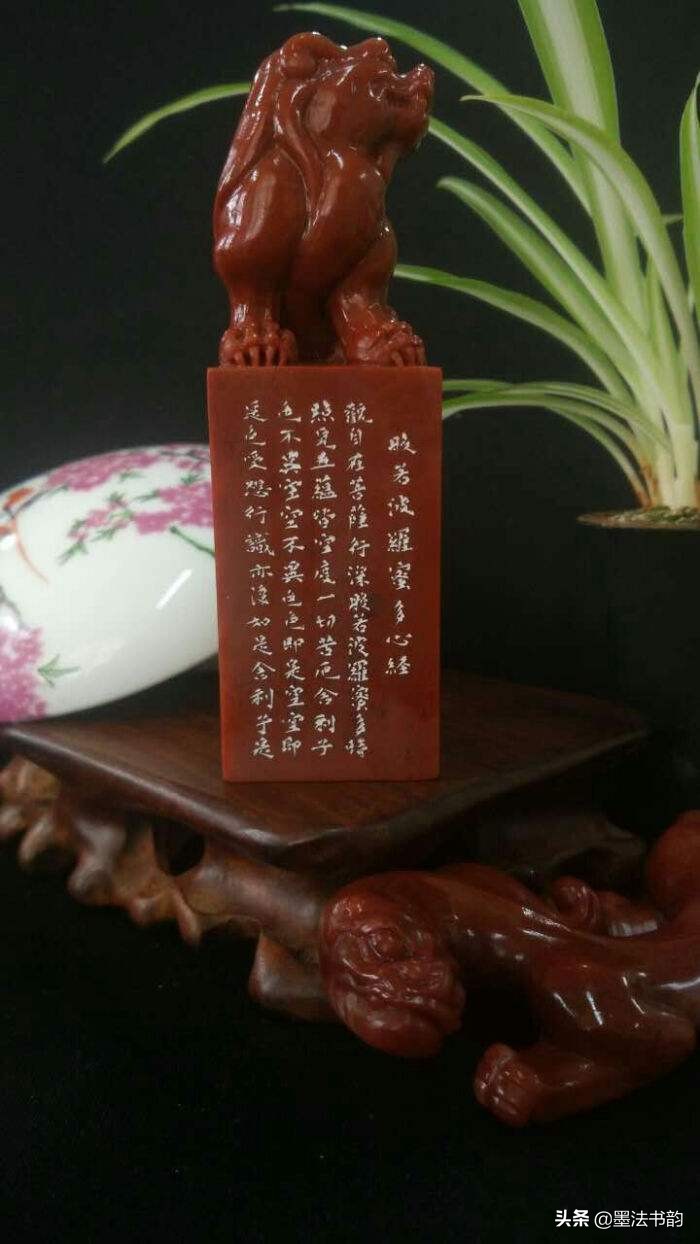 般若波羅蜜多心経
觀自在菩薩行深般若波羅蜜多時
照見五蘊皆空度一切苦厄舍利子
色不異空空不異色色即是空空即
是色受想行識亦復如是舍利子是
头条 @墨法书韵